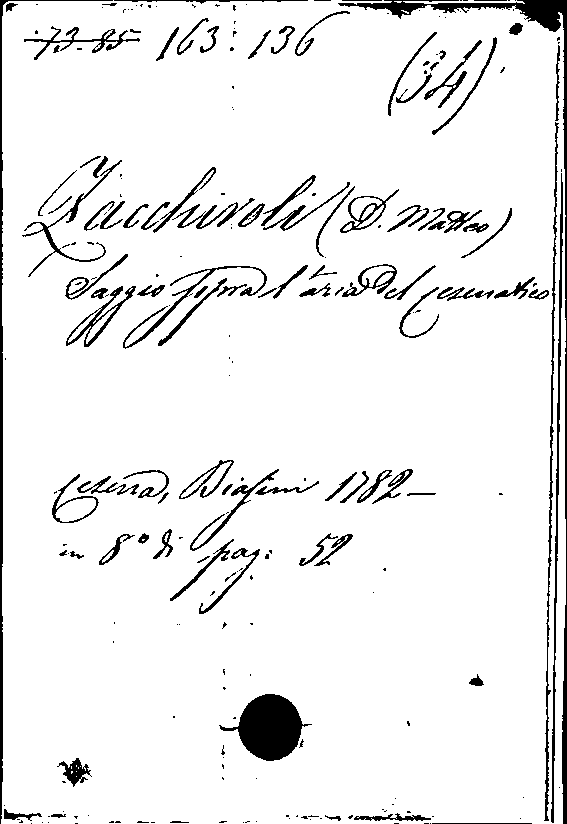 73.85 163.136
(34)
Zacchiroli (D. Matteo)
Saggio sopra l'aria del Cesenatico
Cesena, Biasini 1782 —
in 8° di pag: 52